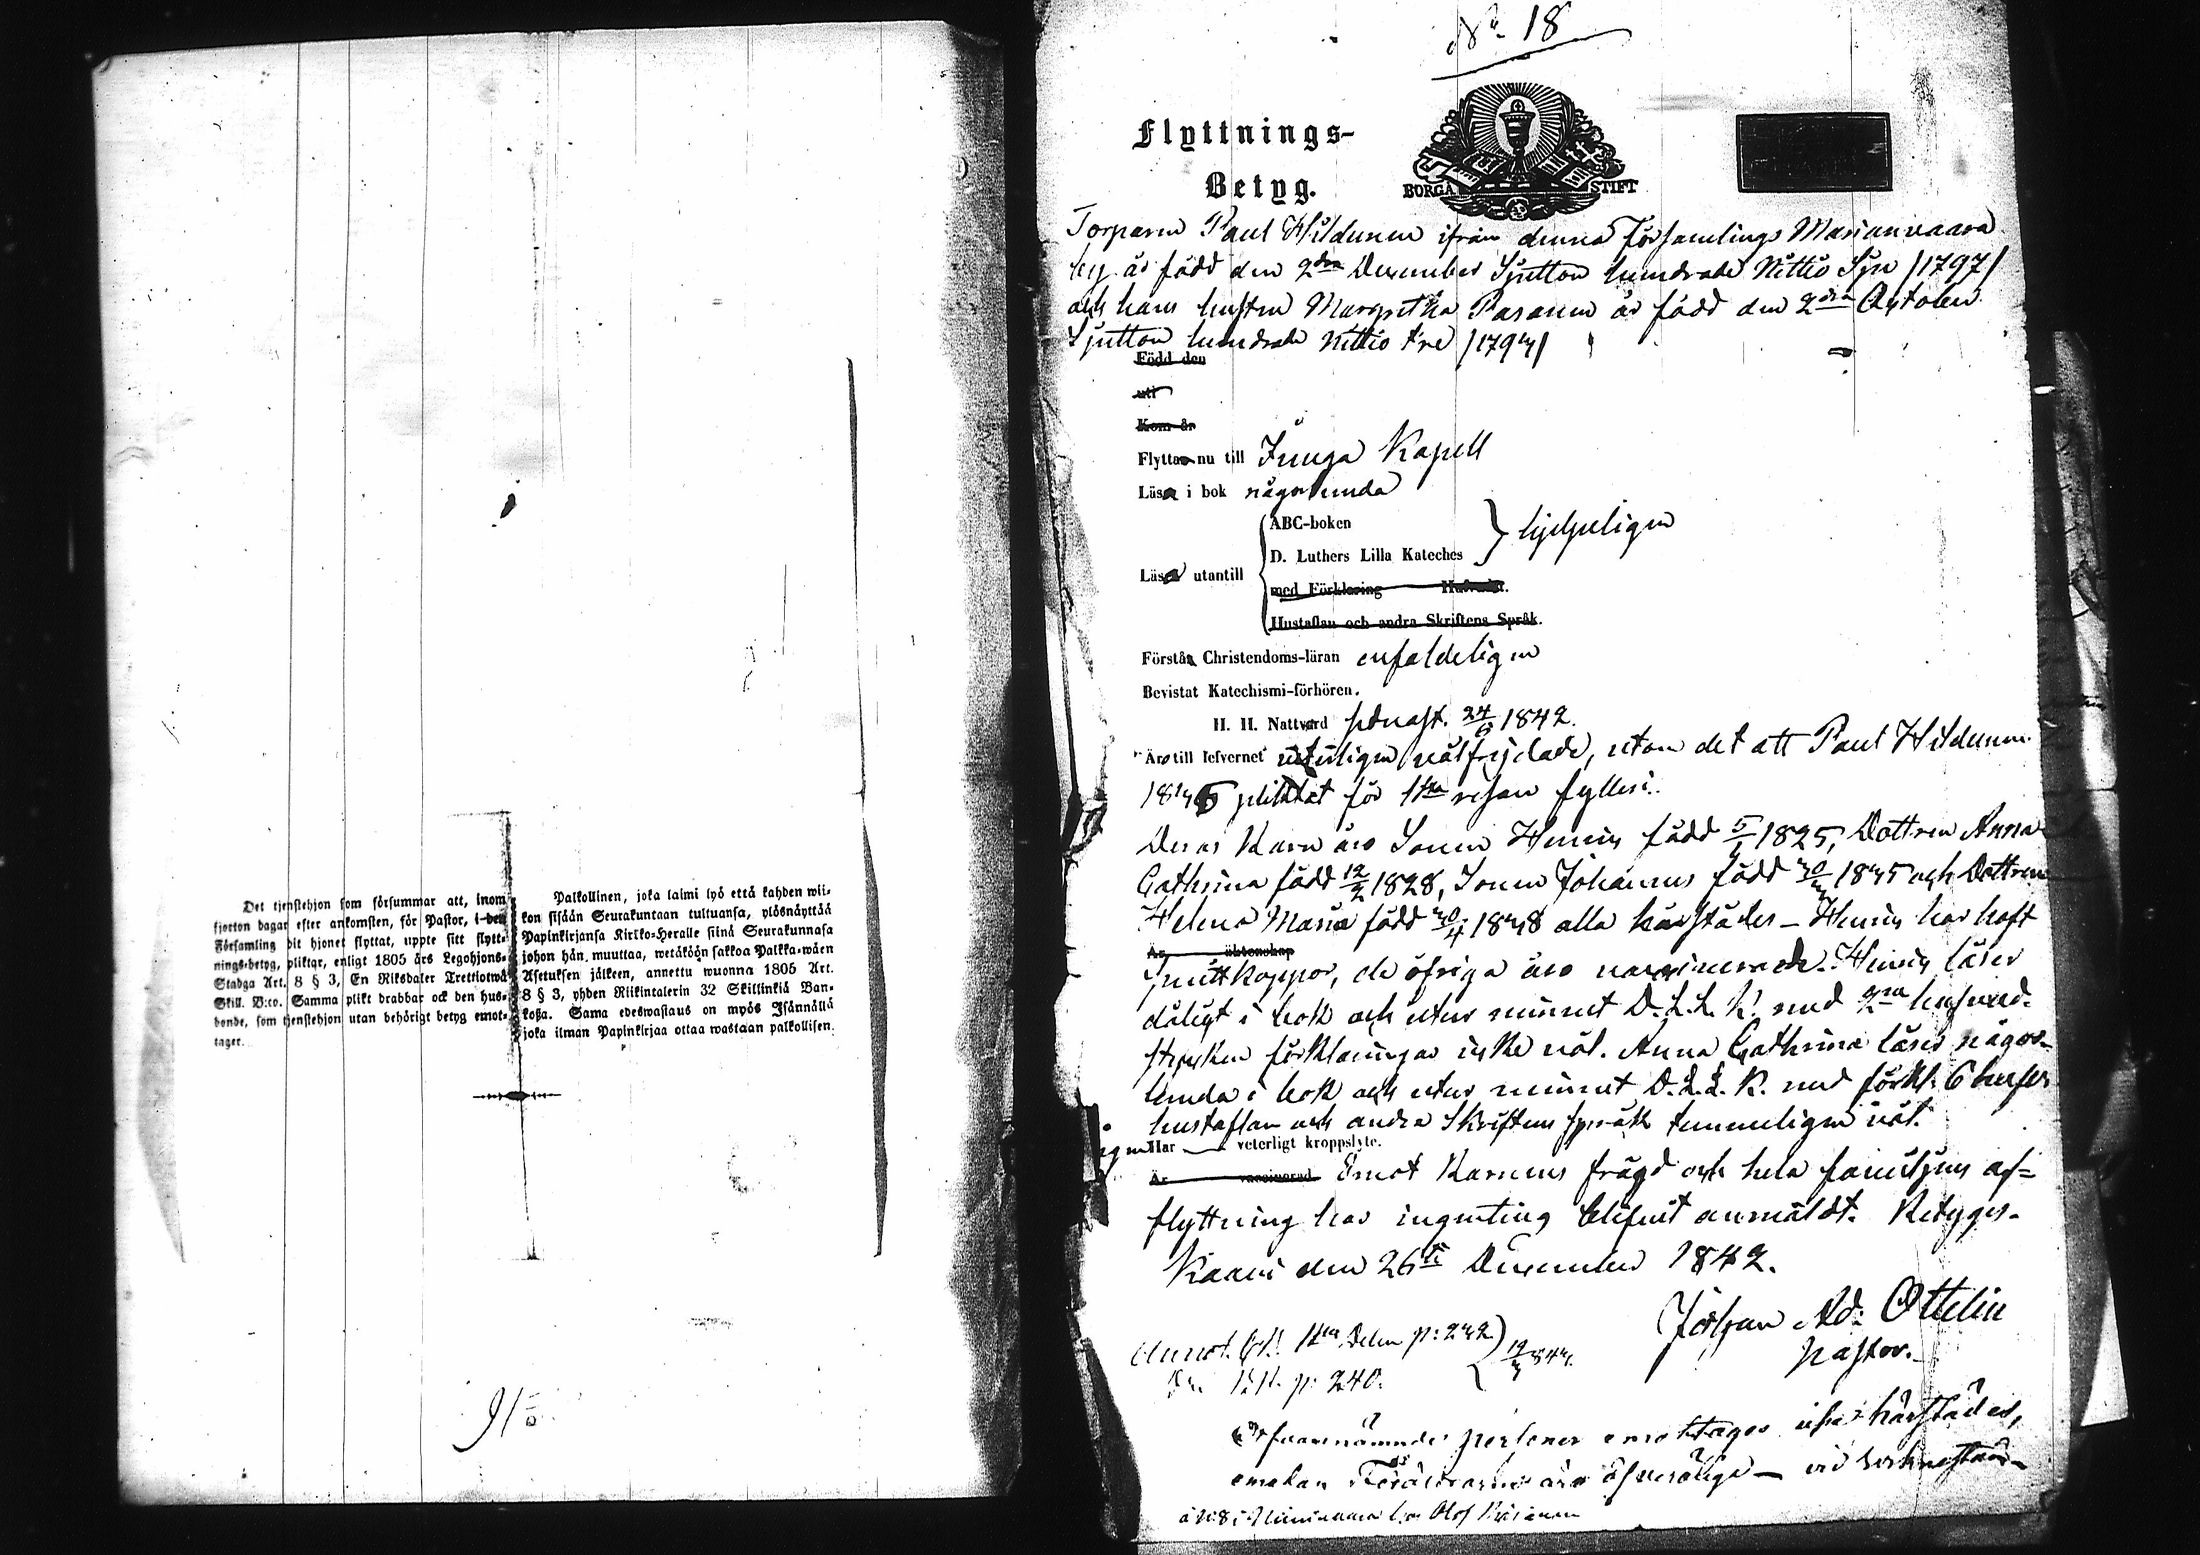 Det tjenstehjon som försummar att, inom
fjorton dagar efter ankomsten, för Pastor, i den
Församling dit hjonet flyttat, uppte sitt flytt-
nings-betyg, pliktar, enligt 1805 års Legohjons-
Stadga Art. 8 § 3, En Riksdaler Trettiotwå
Skill. B:co. Samma plikt drabbar ock den hus-
bonde, som tjenstehjon utan behörigt betyg emot-
tager.
Palkollinen, joka laimi lyö että kahden wii-
kon sisään Seurakuntaan tultuansa, ylösnäyttää
Papinkirjansa Kirkko-Heralle siinä Seurakunnasa
johon hän muuttaa, wetäköön sakkoa Palkka-wäen
Asetuksen jälkeen, annettu wuonna 1805 Art.
8 § 3, yhden Riikintalerin 32 Skillinkiä Ban-
kosa. Sama edeswastaus on myös Isännällä
joka ilman Papinkirjaa ottaa wastaan palkollisen.
No 18
Flyttnings-
Betyg.
BORGÅ STIFT
Torparen Paul Hildunen ifrån denna Församlings Marianvaara
by är född den 2dra December Sjutton hundrade Nittio Sju /1797/
och hans hustru Margretha Pasanen är född den 2dra October
Sjutton hundrade Nittio tre /1793/
Född den
uti
Kom år
Flytta nu till Juuga Kapell
Läsa i bok någorlunda
ABC-boken
D. Luthers Lilla Kateches hjelpeligen
Läsa utantill
med Förklaring
Hustaflan och andra Skriftens Språk.
Förstå Christendoms-läran enfaldeligen
Bevistat Katechismi-förhören.
H. H. Nattvard senast. 24/6 1842.
Äro till lefvernet väl frejdade, utom det att Paul Hildunen
pliktat för 1sta resan fylleri.
Deras Barn äro Sonen Henric född 5/1 1825, Dottren Anna
Cathrina född 12/2 1828, Sonen Johannes född 1835 och Dottren
Helena Maria född 30/4 1838 alla härstädes - Henric har haft
Är äktenskap
Smittkoppor, de öfriga äro vaccinerade. Henric läser
dåligt i bok och utur minnet D. L. L. K. med 2ra hufvud-
styckens förklaringar icke väl. Anna Cathrina läser någor-
lunda i bok och utur minnet D. L. L. K. med förkl.
hustaflan och andra Skriftens språk temmeligen väl.
Har veterligt kroppslyte.
Är vaccinerad. Emot Barnens frägd och hela familjens af-
flyttning har ingenting blifvit anmäldt. Betygas.
Kaavi den 26te December 1842.
Johan Ad. Ottelin
Pastor.
p: 240.
personer emottages härstädes,
emedan Föräldrarne äro